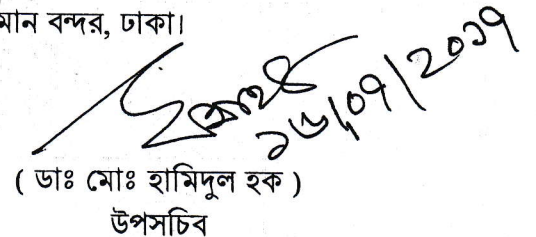 মান বন্দর, ঢাকা।
১৬/০৭/২০১৭
( ডাঃ মোঃ হামিদুল হক )
উপসচিব